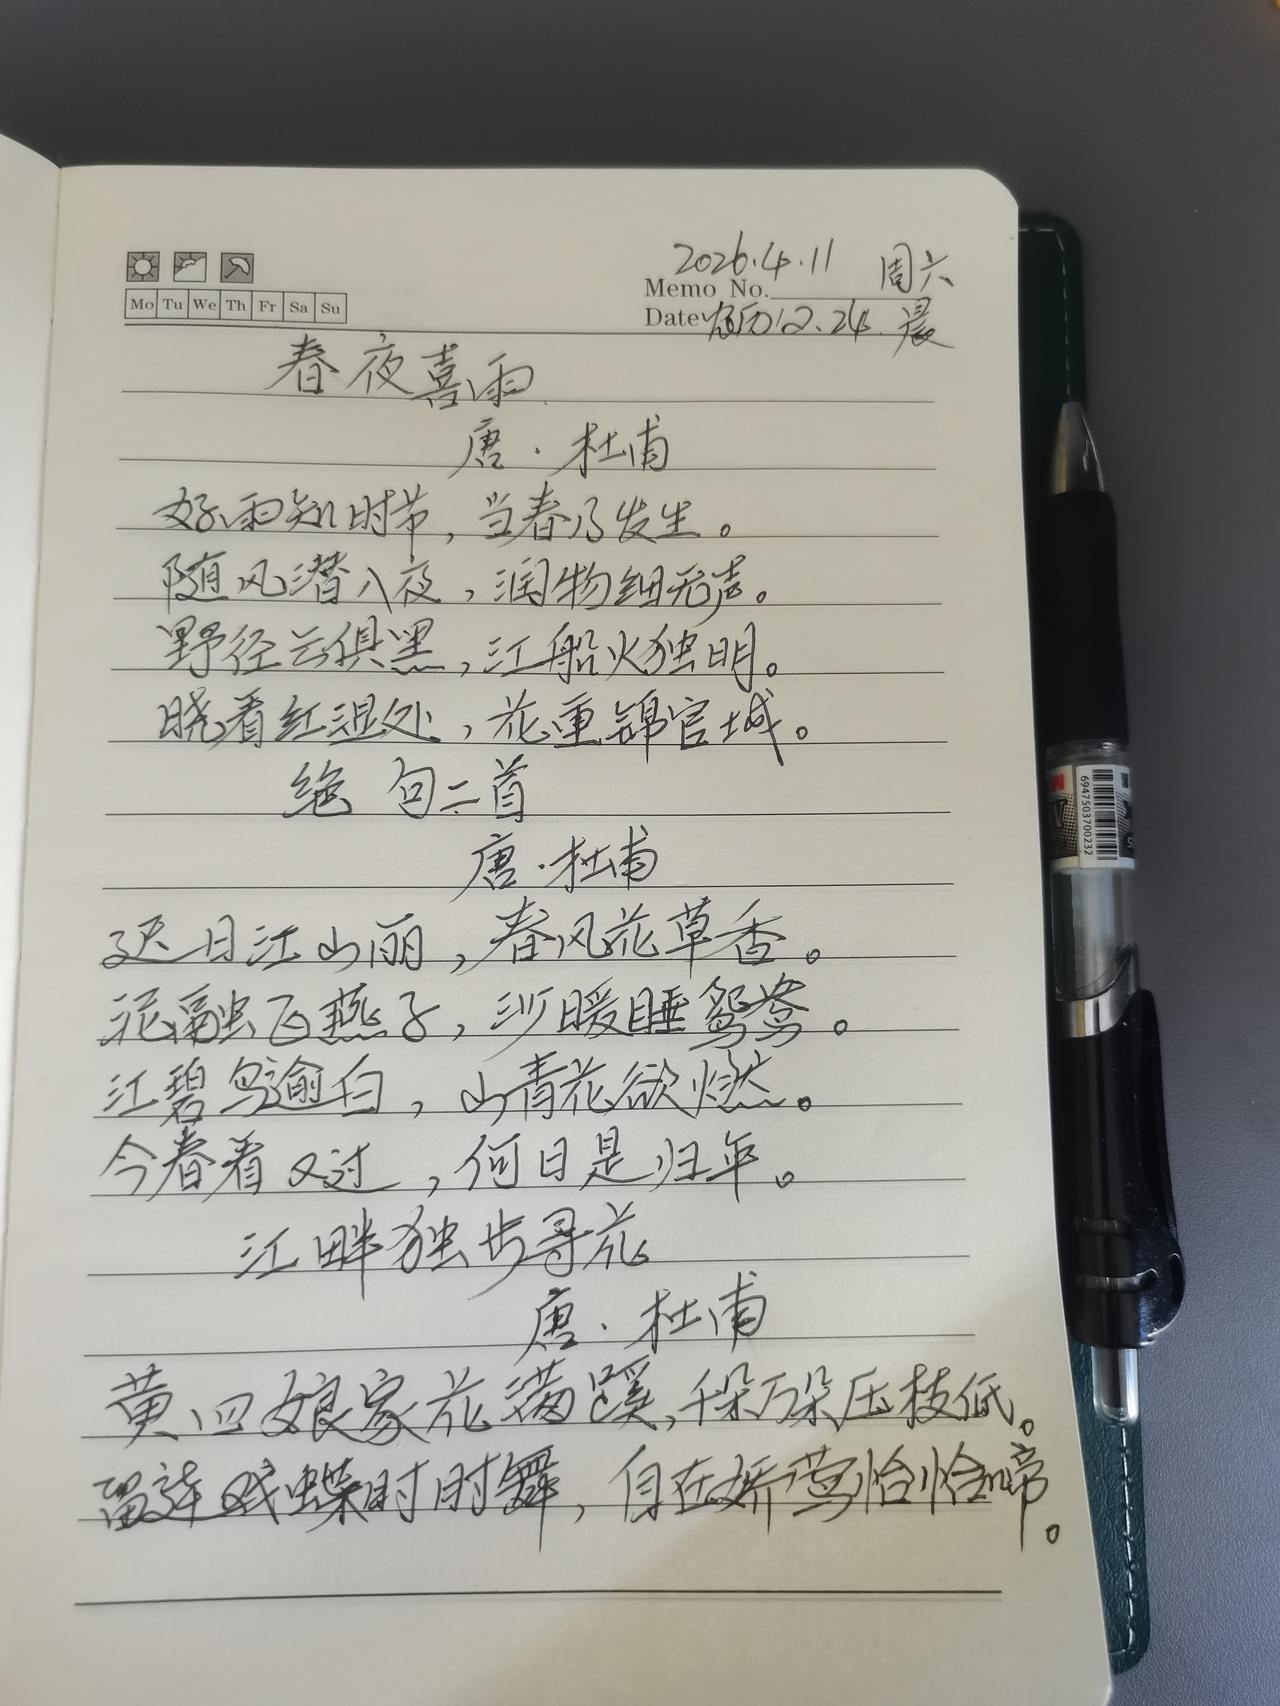 2026.4.11 周六
Memo No.
Mo Tu We Th Fr Sa Su
Date 农历2.24. 晨
春夜喜雨
唐·杜甫
好雨知时节,当春乃发生。
随风潜入夜,润物细无声。
野径云俱黑,江船火独明。
晓看红湿处,花重锦官城。
绝句二首
唐·杜甫
迟日江山丽,春风花草香。
泥融飞燕子,沙暖睡鸳鸯。
江碧鸟逾白,山青花欲燃。
今春看又过,何日是归年。
江畔独步寻花
唐·杜甫
黄四娘家花满蹊,千朵万朵压枝低。
留连戏蝶时时舞,自在娇莺恰恰啼。
6947503700232